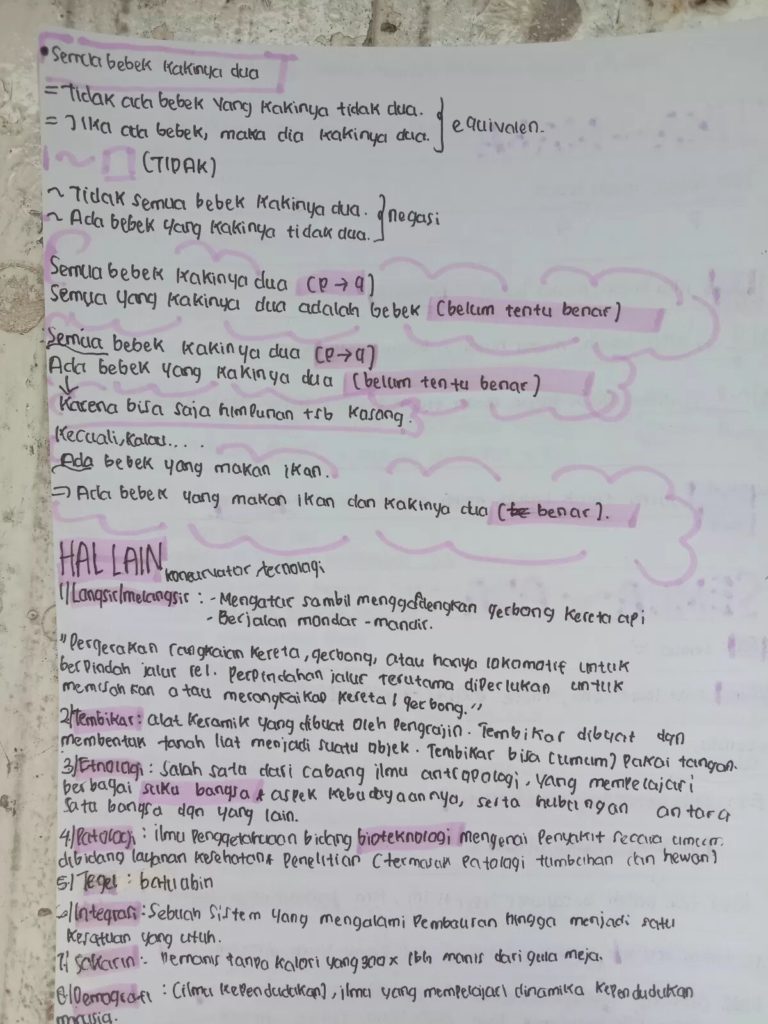 • Semua bebek kakinya dua
= Tidak ada bebek yang kakinya tidak dua.
= Jika ada bebek, maka dia kakinya dua. } equivalen.
~ (TIDAK)
~ Tidak semua bebek kakinya dua.
~ Ada bebek yang kakinya tidak dua. } negasi
Semua bebek kakinya dua (p → q)
Semua yang kakinya dua adalah bebek (belum tentu benar)
Semua bebek kakinya dua (p → q)
Ada bebek yang kakinya dua (belum tentu benar)
↓
Karena bisa saja himpunan tsb kosong.
Kecuali, kalau....
Ada bebek yang makan ikan.
⇒ Ada bebek yang makan ikan dan kakinya dua (benar).
HAL LAIN
1) Langsir/melangsir : - Mengatur sambil gerbong kereta api
- Berjalan mondar-mandir.
"Pergerakan rangkaian kereta, gerbong, atau hanya lokomotif untuk
berpindah jalur rel. Perpindahan jalur terutama diperlukan untuk
memisahkan atau merangkaikan kereta/gerbong."
2) Tembikar : alat keramik yang dibuat oleh pengrajin. Tembikar dibuat dgn
membentuk tanah liat menjadi suatu objek. Tembikar bisa (umum) pakai tangan.
3) Etnologi : Salah satu dari cabang ilmu antropologi, yang mempelajari
berbagai suku bangsa & aspek kebudayaannya, serta hubungan antara
satu bangsa dgn yang lain.
4) Patologi : ilmu bidang bioteknologi mengenai penyakit secara umum
dibidang layanan kesehatan & penelitian (termasuk patologi tumbuhan dan hewan)
5) Tegel : batu ubin
6) Integrasi : Sebuah sistem yang mengalami pembauran hingga menjadi satu
kesatuan yang utuh.
7) Sakarin : Pemanis tanpa kalori yang 300x lbh manis dari gula meja.
8) Demografi : (ilmu kependudukan), ilmu yang mempelajari dinamika kependudukan